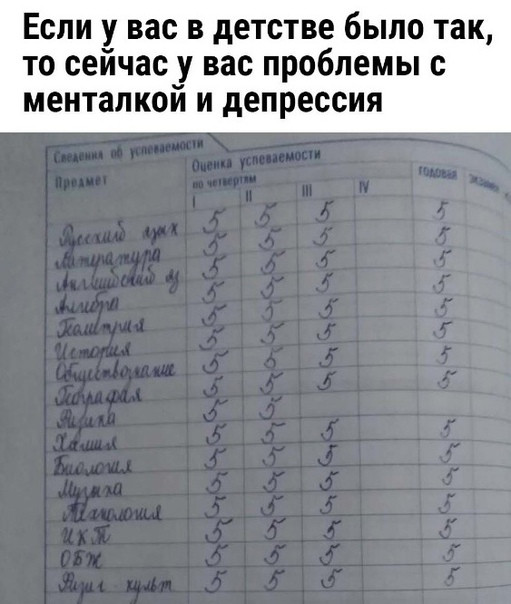 Если у вас в детстве было так,
то сейчас у вас проблемы с
менталкой и депрессия
Сведения об успеваемости
Предмет Оценка успеваемости
по четвертям годовая
I II III IV
Русский язык 5 5 5 5
Литература 5 5 5 5
Английский яз 5 5 5 5
Алгебра 5 5 5 5
Геометрия 5 5 5 5
История 5 5 5 5
Обществознание 5 5 5 5
География 5 5 5 5
Физика 5 5
Химия 5 5 5 5
Биология 5 5 5 5
Музыка 5 5 5 5
Технология 5 5 5 5
ИКТ 5 5 5 5
ОБЖ 5 5 5 5
Физич. культ 5 5 5 5